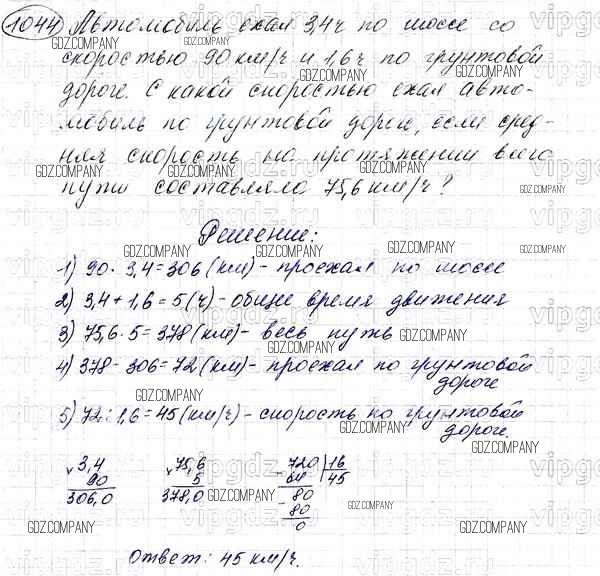 1044 Автомобиль ехал 3,4 ч по шоссе со
скоростью 90 км/ч и 1,6 ч по грунтовой
дороге. С какой скоростью ехал авто-
мобиль по грунтовой дороге, если сред-
няя скорость на протяжении всего
пути составляла 75,6 км/ч?
Решение:
1) 90 · 3,4 = 306 (км) - проехал по шоссе
2) 3,4 + 1,6 = 5 (ч) - общее время движения
3) 75,6 · 5 = 378 (км) - весь путь
4) 378 - 306 = 72 (км) - проехал по грунтовой
дороге
5) 72 : 1,6 = 45 (км/ч) - скорость по грунтовой
дороге.
x 3,4 x 75,6 - 720 | 16
90 5 64 45
306,0 378,0 - 80
80
0
Ответ: 45 км/ч.